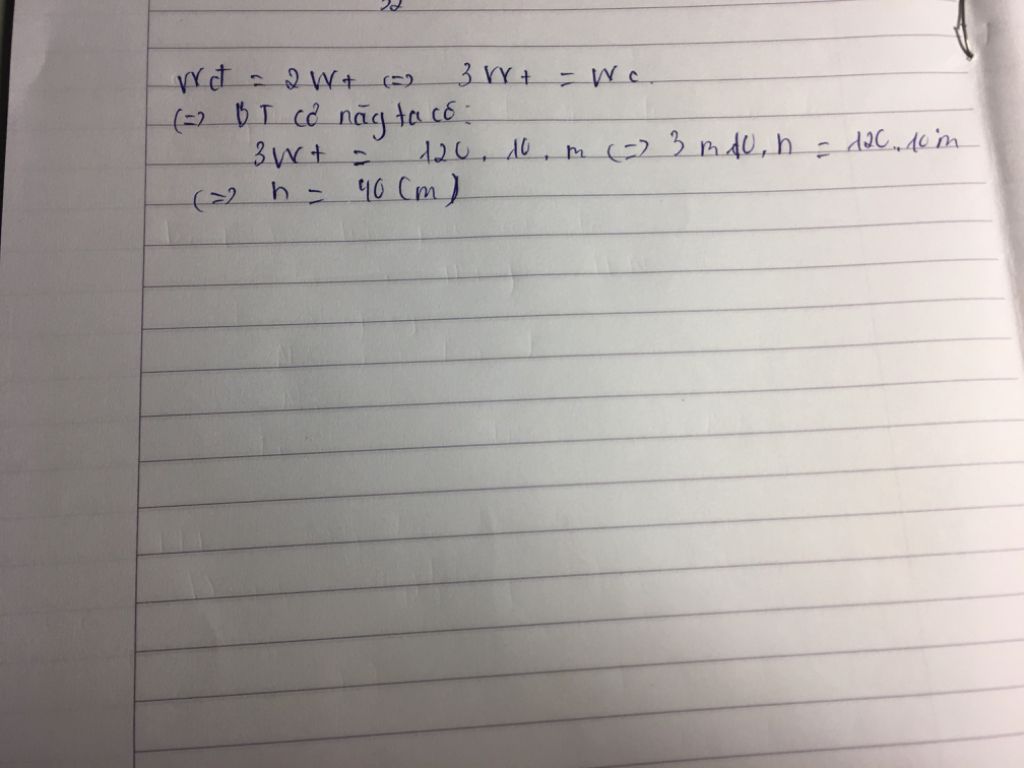 Wđ = 2Wt (=) 3Wt = Wc.
(=) BT cơ năg ta có:
3Wt = 120. 10. m (=) 3 m10. h = 120. 10 m
(=) h = 40 (m)